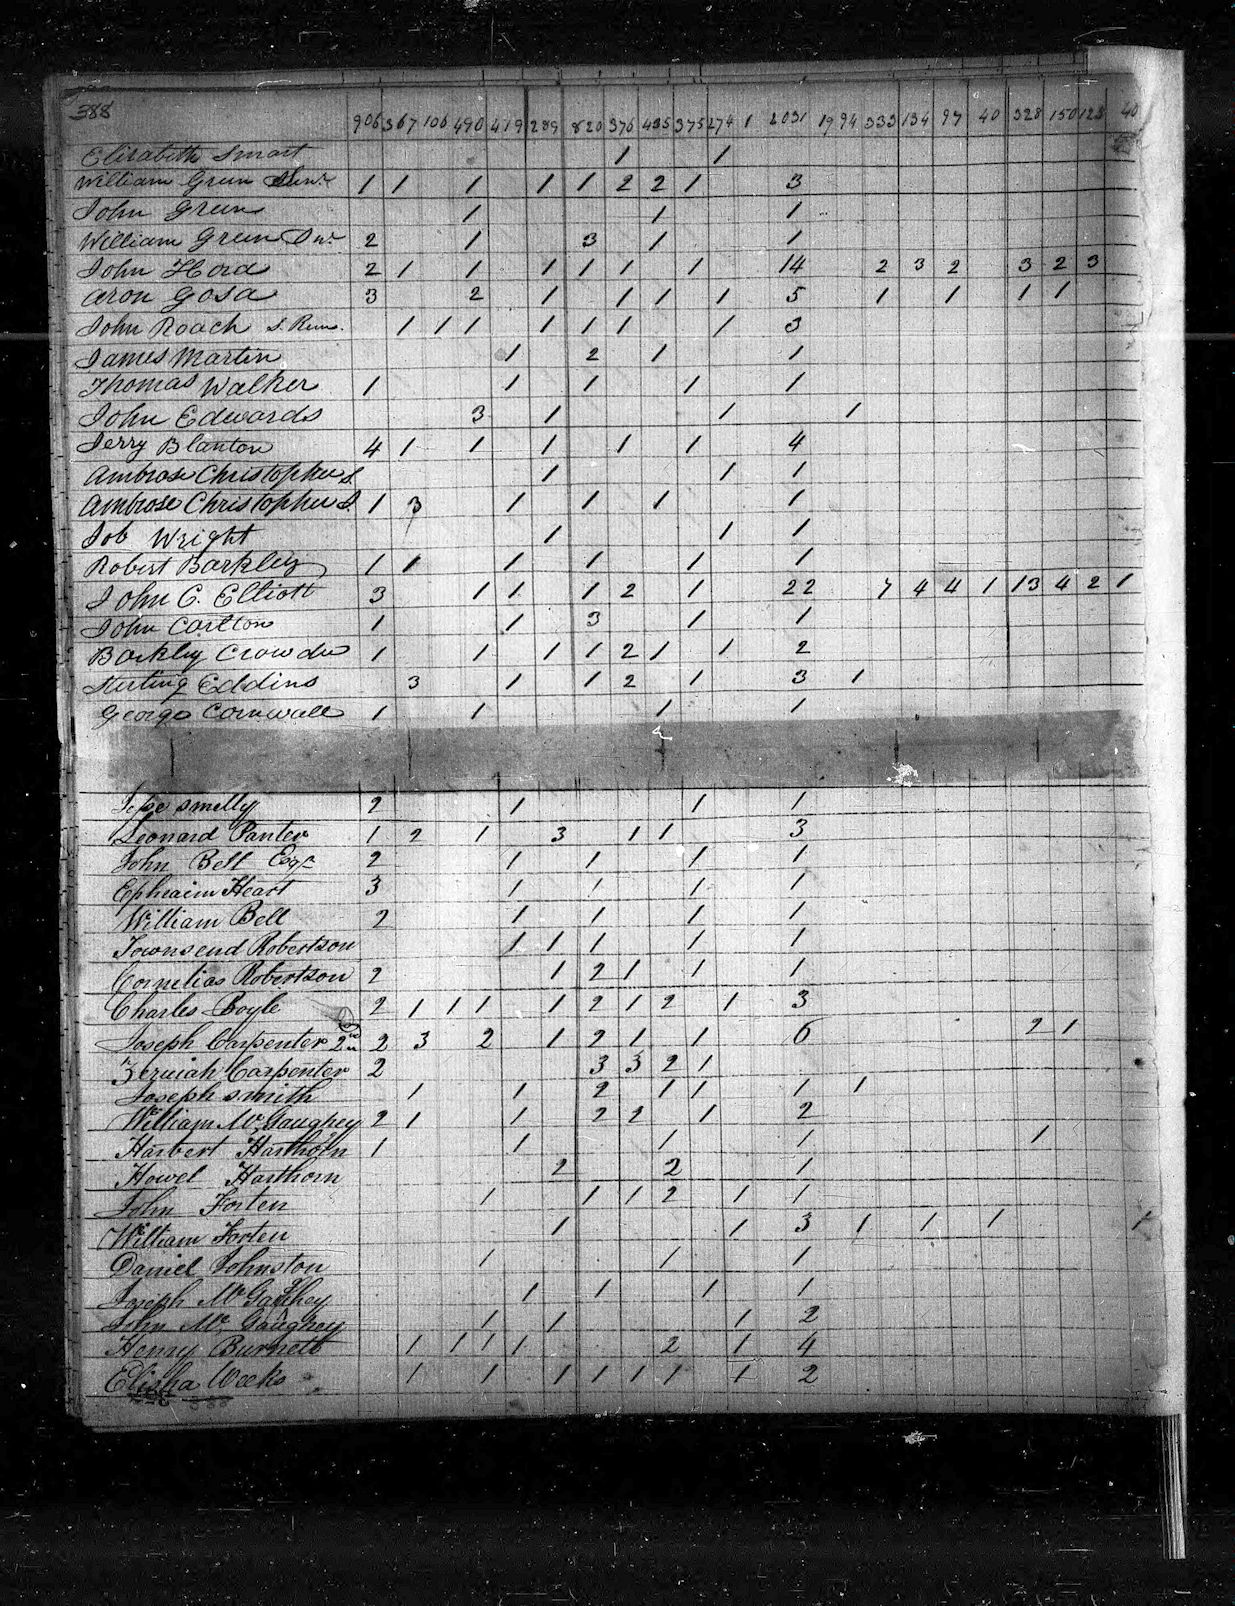 388
906 367 106 490 419 289 820 376 435 375 274 1 2031 19 94 333 134 97 40 328 150 123 40
Elizabeth Smart 1 1
William Green Senr. 1 1 1 1 1 2 2 1 3
John Green 1 1 1
William Green Jnr. 2 1 3 1 1
John Hord 2 1 1 1 1 1 1 14 2 3 2 3 2 3
Aron Gosa 3 2 1 1 1 1 5 1 1 1 1
John Roach 1 1 1 1 1 1 1 3
James Martin 1 2 1 1
Thomas Walker 1 1 1 1 1
John Edwards 3 1 1 1
Jerry Blanton 4 1 1 1 1 1 4
Ambrose Christopher S. 1 1 1
Ambrose Christopher J. 1 3 1 1 1 1
Job Wright 1 1 1
Robert Barkley 1 1 1 1 1 1
John C. Elliott 3 1 1 1 2 1 22 7 4 4 1 13 4 2 1
John Carlton 1 1 3 1 1
Barkley Crowder 1 1 1 1 2 1 1 2
Sterling Eddins 3 1 1 2 1 3 1
George Cornwall 1 1 1 1
Jesse Smelly 2 1 1 1
Leonard Panter 1 2 1 3 1 1 3
John Bell Esqr 2 1 1 1 1
Epheaim Heart 3 1 1 1 1
William Bell 2 1 1 1 1
Townsend Robertson 1 1 1 1 1
Cornelias Robertson 2 1 2 1 1 1
Charles Boyle 2 1 1 1 1 2 1 2 1 3
Joseph Carpenter 2nd 2 3 2 1 2 1 1 6 2 1
Zeruiah Carpenter 2 3 3 2 1
Joseph Smith 1 1 2 1 1 1 1
William McGaughey 2 1 1 2 2 1 2
Harbert Harthorn 1 1 1 1 1
Howel Harthorn 2 2 1
John Forten 1 1 1 2 1 1
William Forten 1 1 3 1 1 1 1
Daniel Johnston 1 1 1
Joseph McGaughey 1 1 1 1
John McGaughey 1 1 1 2
Henry Burnett 1 1 1 1 2 1 4
Elisha Weeks 1 1 1 1 1 1 1 2